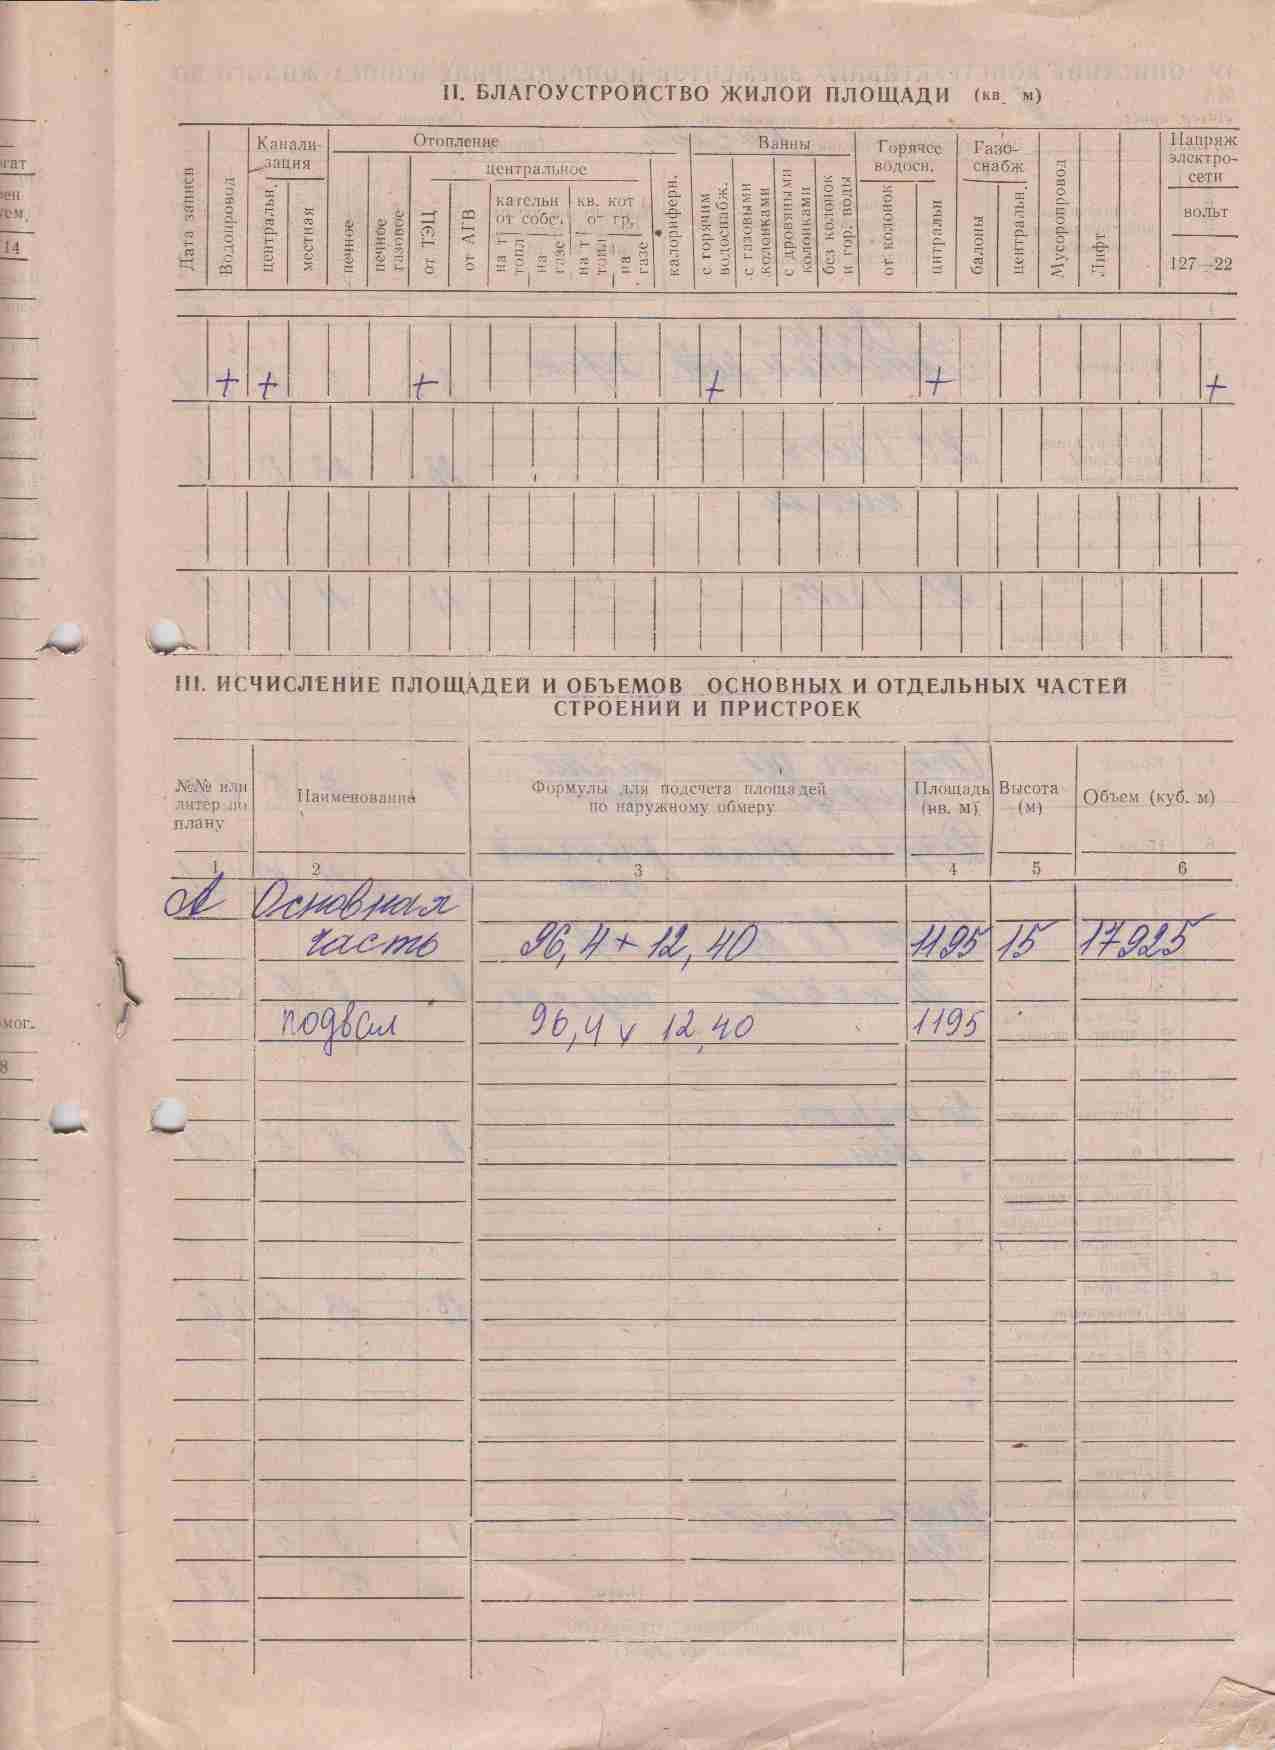 II. БЛАГОУСТРОЙСТВО ЖИЛОЙ ПЛОЩАДИ (кв. м)
Дата записи
Водопровод
Канали-
зация
центральн.
местная
Отопление
печное
печное
газовое
центральное
от ТЭЦ
от АГВ
кательн
от собс.
на т
топл
на
газе
кв. кот
от гр.
на т
топл
на
газе
калориферн.
Ванны
с горячим
водоснабж.
с газовыми
колонками
с дровяными
колонками
без колонок
и гор. воды
Горячее
водосн.
от колонок
цнтральн
Газо-
снабж
балоны
центральн.
Мусоропровод
Лифт
Напряж
электро-
сети
вольт
127—22
+ + + + + +
III. ИСЧИСЛЕНИЕ ПЛОЩАДЕЙ И ОБЪЕМОВ ОСНОВНЫХ И ОТДЕЛЬНЫХ ЧАСТЕЙ
СТРОЕНИЙ И ПРИСТРОЕК
№№ или
литер по
плану
Наименование
Формулы для подсчета площадей
по наружному обмеру
Площадь
(кв. м)
Высота
(м)
Объем (куб. м)
1 2 3 4 5 6
А Основная
часть 96,4 + 12,40 1195 15 17925
подвал 96,4 х 12,40 1195
гат
ен
уем.
14
мог.
8